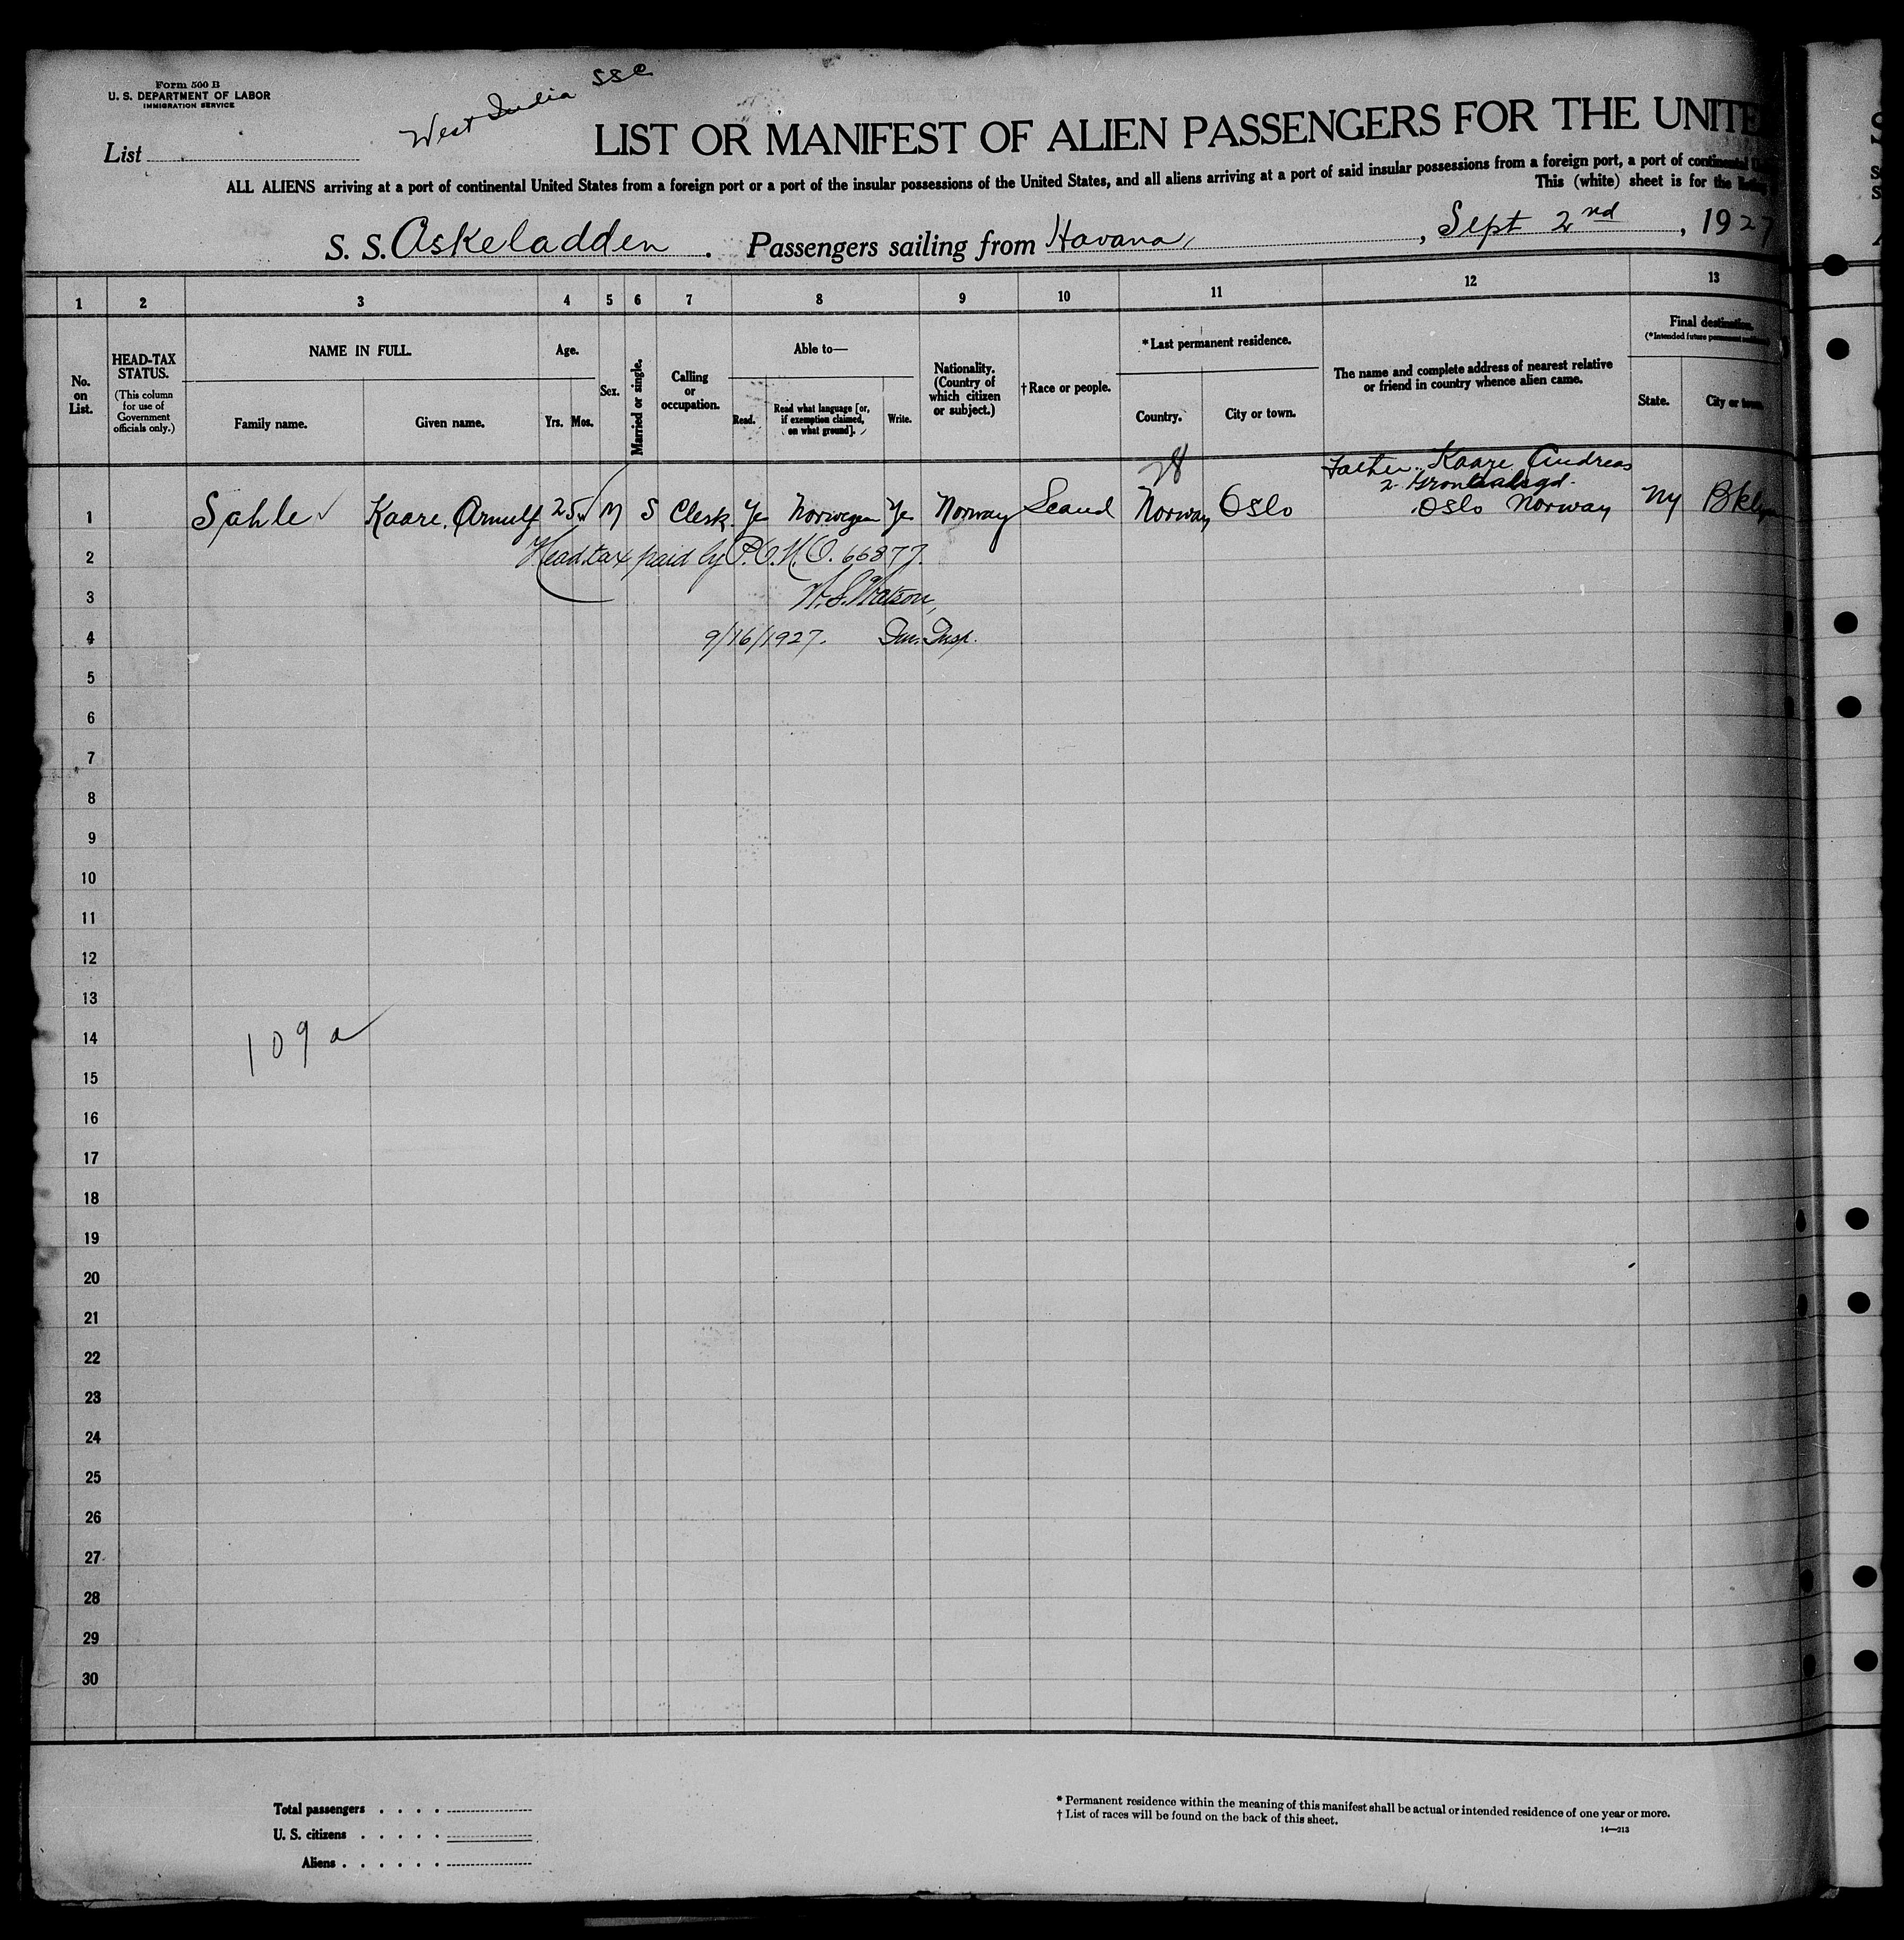 Form 500 B
U. S. DEPARTMENT OF LABOR
IMMIGRATION SERVICE
West India SSC
List
LIST OR MANIFEST OF ALIEN PASSENGERS FOR THE UNITE
ALL ALIENS arriving at a port of continental United States from a foreign port or a port of the insular possessions of the United States, and all aliens arriving at a port of said insular possessions from a foreign port, a port of continental
This (white) sheet is for the
S. S. Askeladden. Passengers sailing from Havana, Sept 2nd, 1927
1 2 3 4 5 6 7 8 9 10 11 12 13
No. on List.
HEAD-TAX STATUS.
(This column for use of Government officials only.)
NAME IN FULL.
Family name. Given name.
Age.
Yrs. Mos.
Sex.
Married or single.
Calling or occupation.
Able to—
Read. Read what language [or, if exemption claimed, on what ground]. Write.
Nationality. (Country of which citizen or subject.)
†Race or people.
*Last permanent residence.
Country. City or town.
The name and complete address of nearest relative or friend in country whence alien came.
Final destination.
(*Intended future permanent residence)
State. City or town.
28
Father. Kaare Andreas
2
1 Sahle Kaare, Arnulf 25 M S Clerk Ye Norwegen Ye Norway Scand Norway Oslo Oslo Norway Ny Bklyn
2 Head tax paid by P.O.M.O. 66877.
3 W.S. Watson,
4 9/16/1927. Im. Insp.
5
6
7
8
9
10
11
12
13
14 109 a
15
16
17
18
19
20
21
22
23
24
25
26
27
28
29
30
Total passengers . . . .
U. S. citizens . . . . .
Aliens . . . . . .
* Permanent residence within the meaning of this manifest shall be actual or intended residence of one year or more.
† List of races will be found on the back of this sheet.
14—213